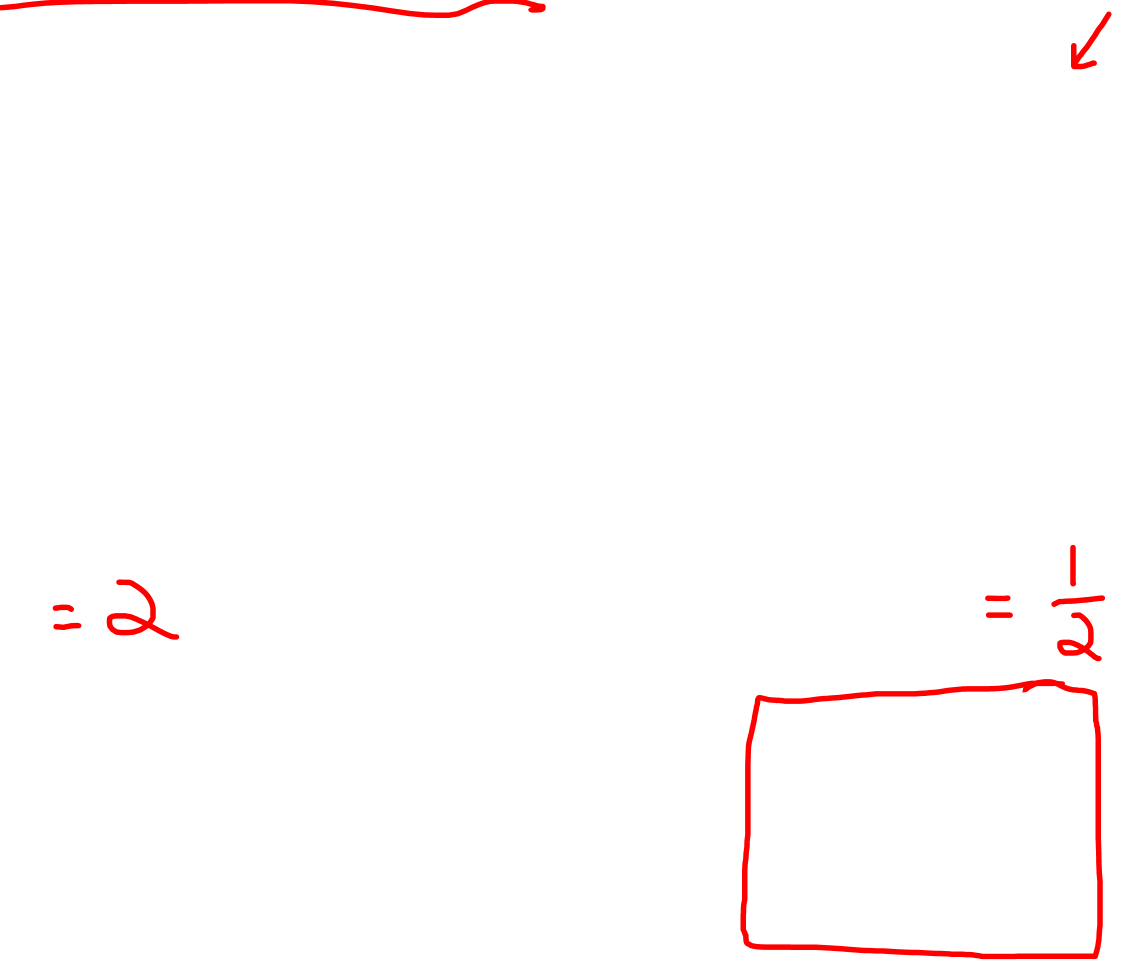 = 2
= 1/2